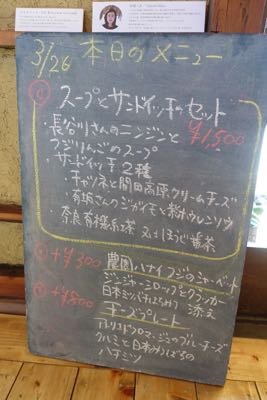 3/26 本日のメニュー
スープとサンドイッチのセット
¥1,500
・長谷川さんのニンジンと
フジりんごのスープ
・サンドイッチ2種
チャツネと開田高原クリームチーズ
有坂さんのジャガイモと紫ホウレンソウ
・奈良有機紅茶 又はほうじ番茶
+¥300 農園ハナイフジのシャーベット
ジンジャーシロップとクラッカー
日本ミツバチはちみつ 添え
+¥800 チーズプレート
アトリエ・ド・フロマージュのブルーチーズ
クルミと日本みつばちの
ハチミツ